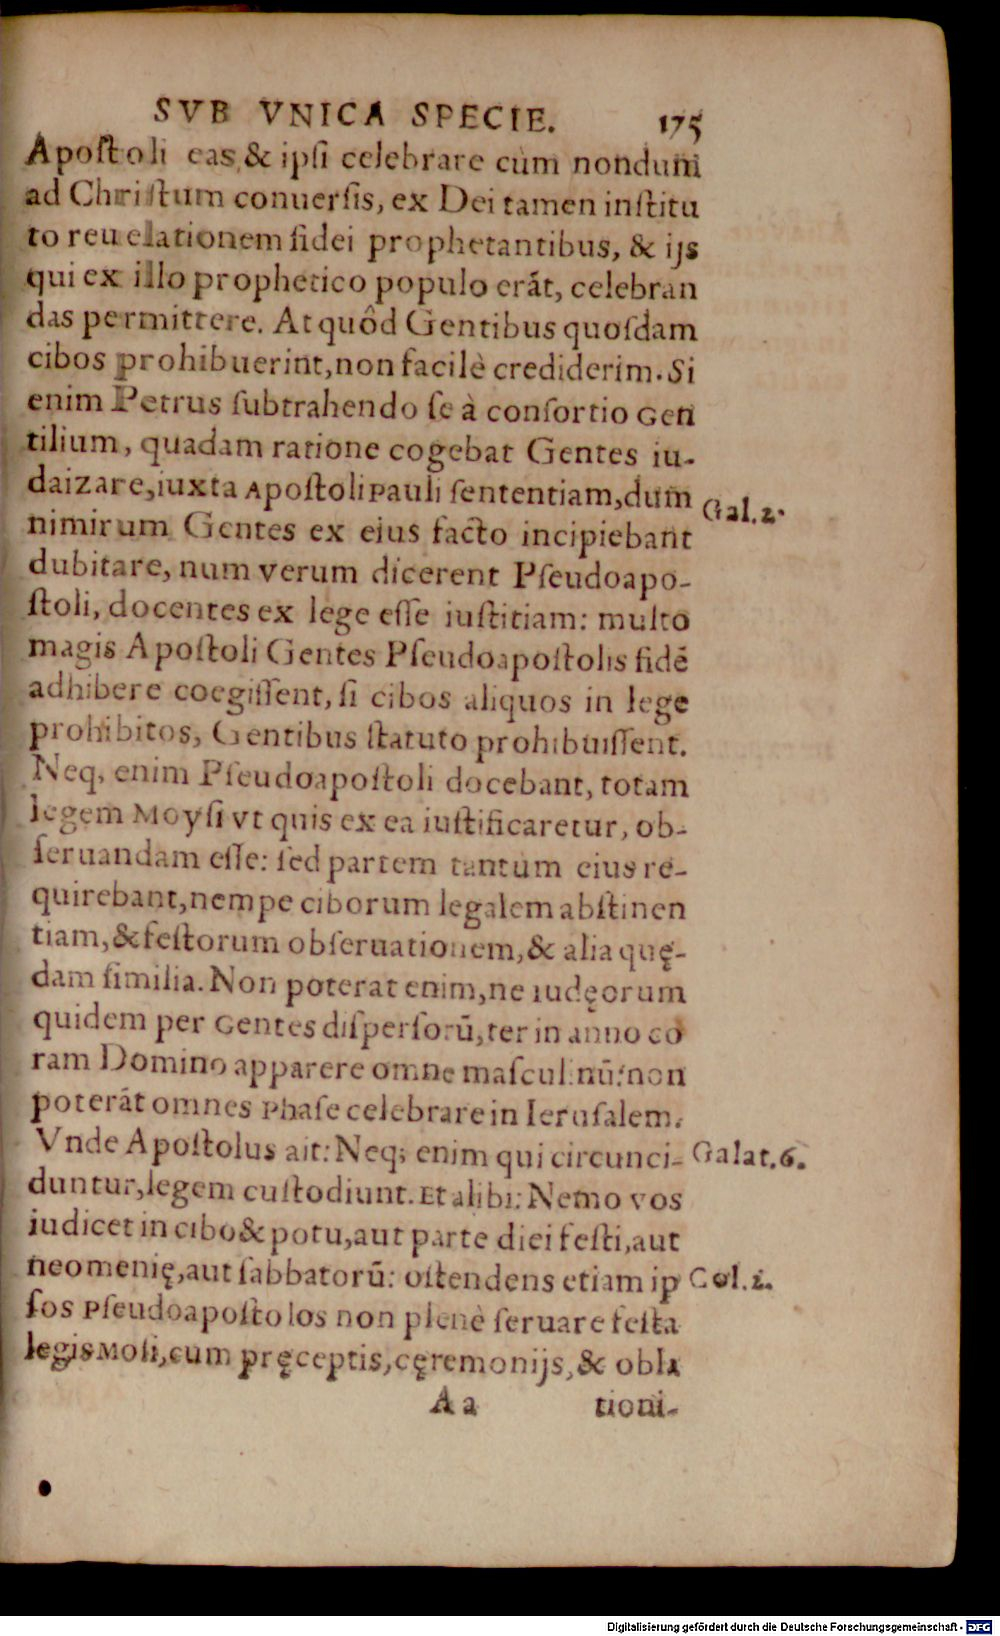 SVB VNICA SPECIE. 175
Apoſtoli eas, & ipſi celebrare cùm nondum
ad Chriſtum conuerſis, ex Dei tamen inſtitu
to reuelationem fidei prophetantibus, & ijs
qui ex illo prophetico populo erãt, celebran
das permittere. At quôd Gentibus quoſdam
cibos prohibuerint, non facilè crediderim. Si
enim Petrus ſubtrahendo ſe à conſortio Gen
tilium, quadam ratione cogebat Gentes iu-
daizare, iuxta Apoſtoli Pauli ſententiam, dum
Gal. 2.
nimirum Gentes ex eius facto incipiebant
dubitare, num verum dicerent Pſeudoapo-
ſtoli, docentes ex lege eſſe iuſtitiam: multo
magis Apoſtoli Gentes Pſeudoapoſtolis fidẽ
adhibere coegiſſent, ſi cibos aliquos in lege
prohibitos, Gentibus ſtatuto prohibuiſſent.
Neq; enim Pſeudoapoſtoli docebant, totam
legem Moyſi vt quis ex ea iuſtificaretur, ob-
ſeruandam eſſe: ſed partem tantum eius re-
quirebant, nempe ciborum legalem abſtinen
tiam, & feſtorum obſeruationem, & alia quę-
dam ſimilia. Non poterat enim, ne Iudęorum
quidem per Gentes diſperſorũ, ter in anno co
ram Domino apparere omne maſculinũ: non
poterãt omnes Phaſe celebrare in Ieruſalem.
Vnde Apoſtolus ait: Neq; enim qui circunci-
Galat. 6.
duntur, legem cuſtodiunt. Et alibi: Nemo vos
iudicet in cibo & potu, aut parte diei feſti, aut
neomenię, aut ſabbatorũ: oſtendens etiam ip
Col. 2.
ſos Pſeudoapoſtolos non plenè ſeruare feſta
legis Moſi, cum pręceptis, cęremonijs, & obla
Aa tioni-
Digitalisierung gefördert durch die Deutsche Forschungsgemeinschaft - DFG